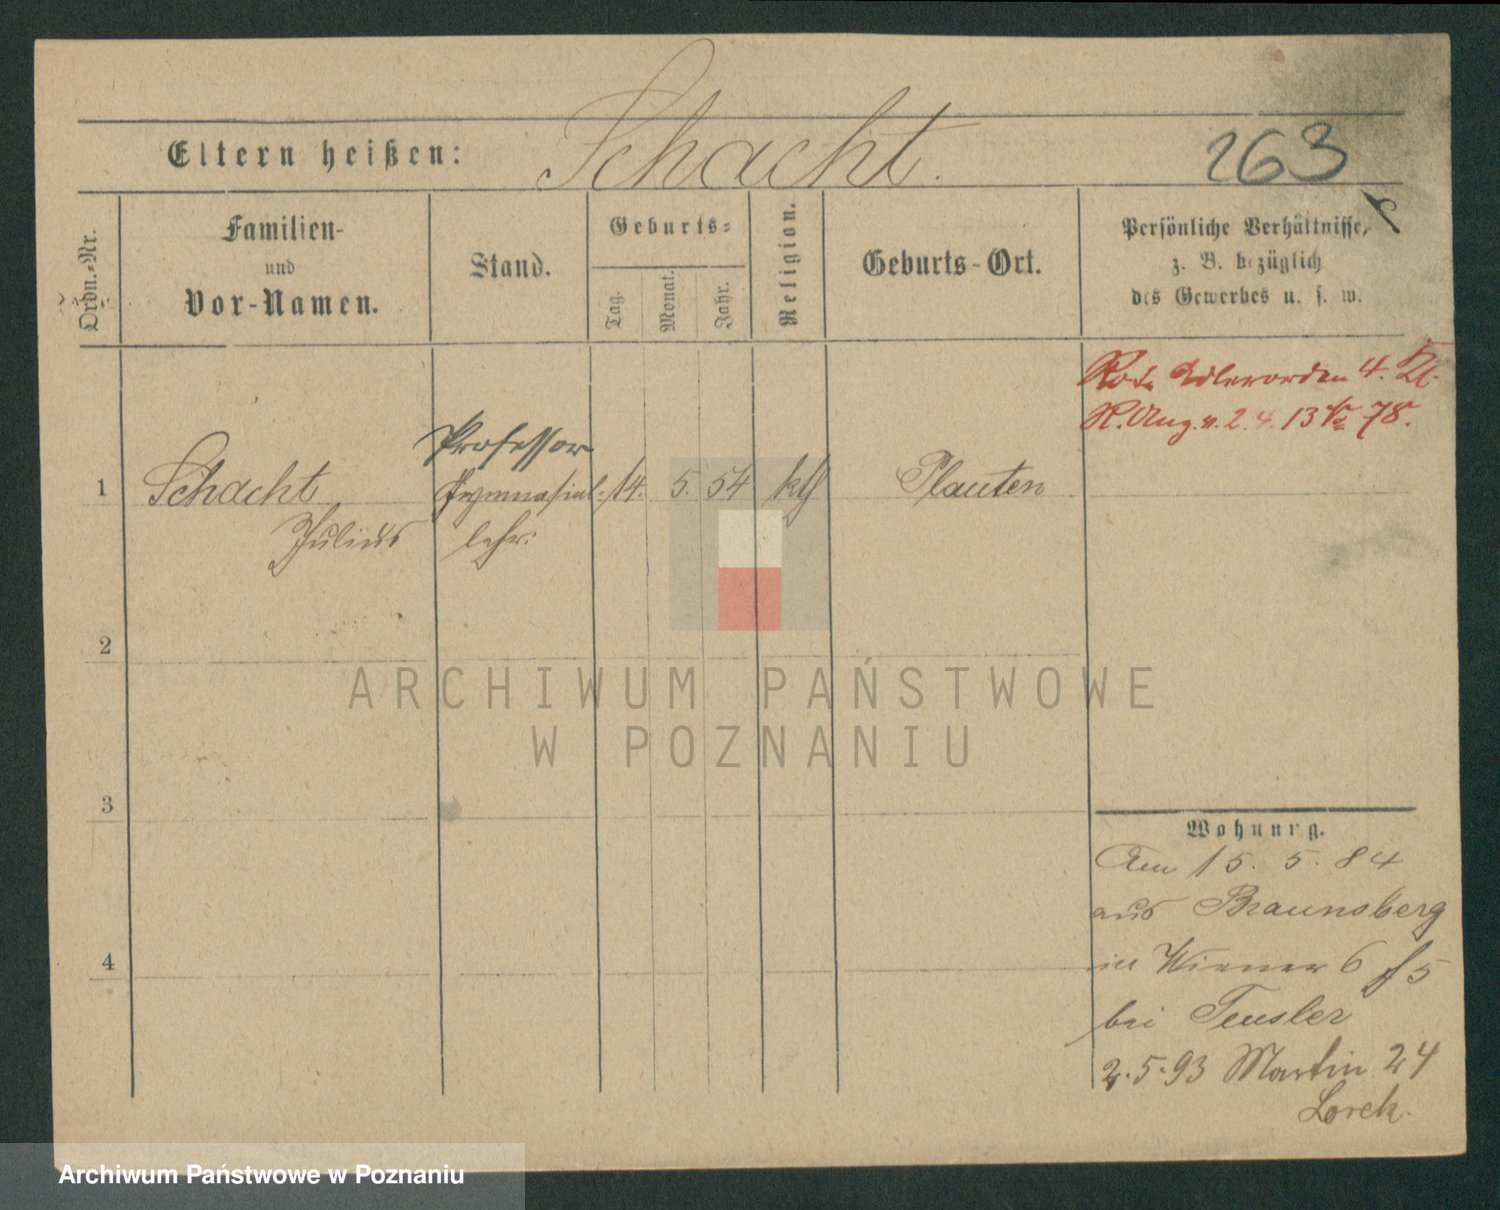 Eltern heißen: Schacht.
263
Ordn.-Nr.
Familien-
und
Vor-Namen.
Stand.
Geburts-
Tag.
Monat.
Jahr.
Religion.
Geburts-Ort.
Persönliche Verhältnisse,
z. B. bezüglich
des Gewerbes u. s. w.
Rote Adlerorden 4. Kl.
R. Anz. v. 2. 4. 13 78.
Professor
1 Schacht Gymnasial- 14. 5. 54 kth Plauten
Julius lehr.
2
3
4
Wohnung.
Am 15. 5. 84
aus Braunsberg
in Wiener 6 f 5
bei Teusler
2.5.93 Martin 24
Lorek.
ARCHIWUM PAŃSTWOWE
W POZNANIU
Archiwum Państwowe w Poznaniu